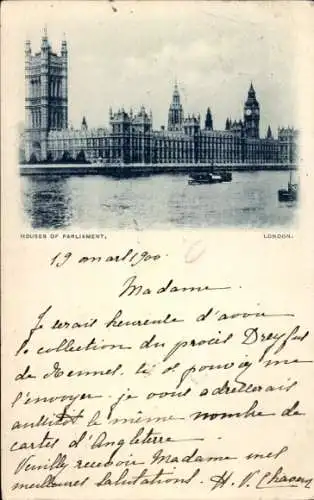 HOUSES OF PARLIAMENT,
LONDON.
19 mars 1900
Madame.
Je serais heureuse d'avoir
la collection du procès Dreyfus
de Rennes, si vous pouviez me
l'envoyer. je vous adresserais
aussitôt le même nombre de
cartes d'Angleterre
Veuillez recevoir Madame mes
meilleures salutations. H. V.